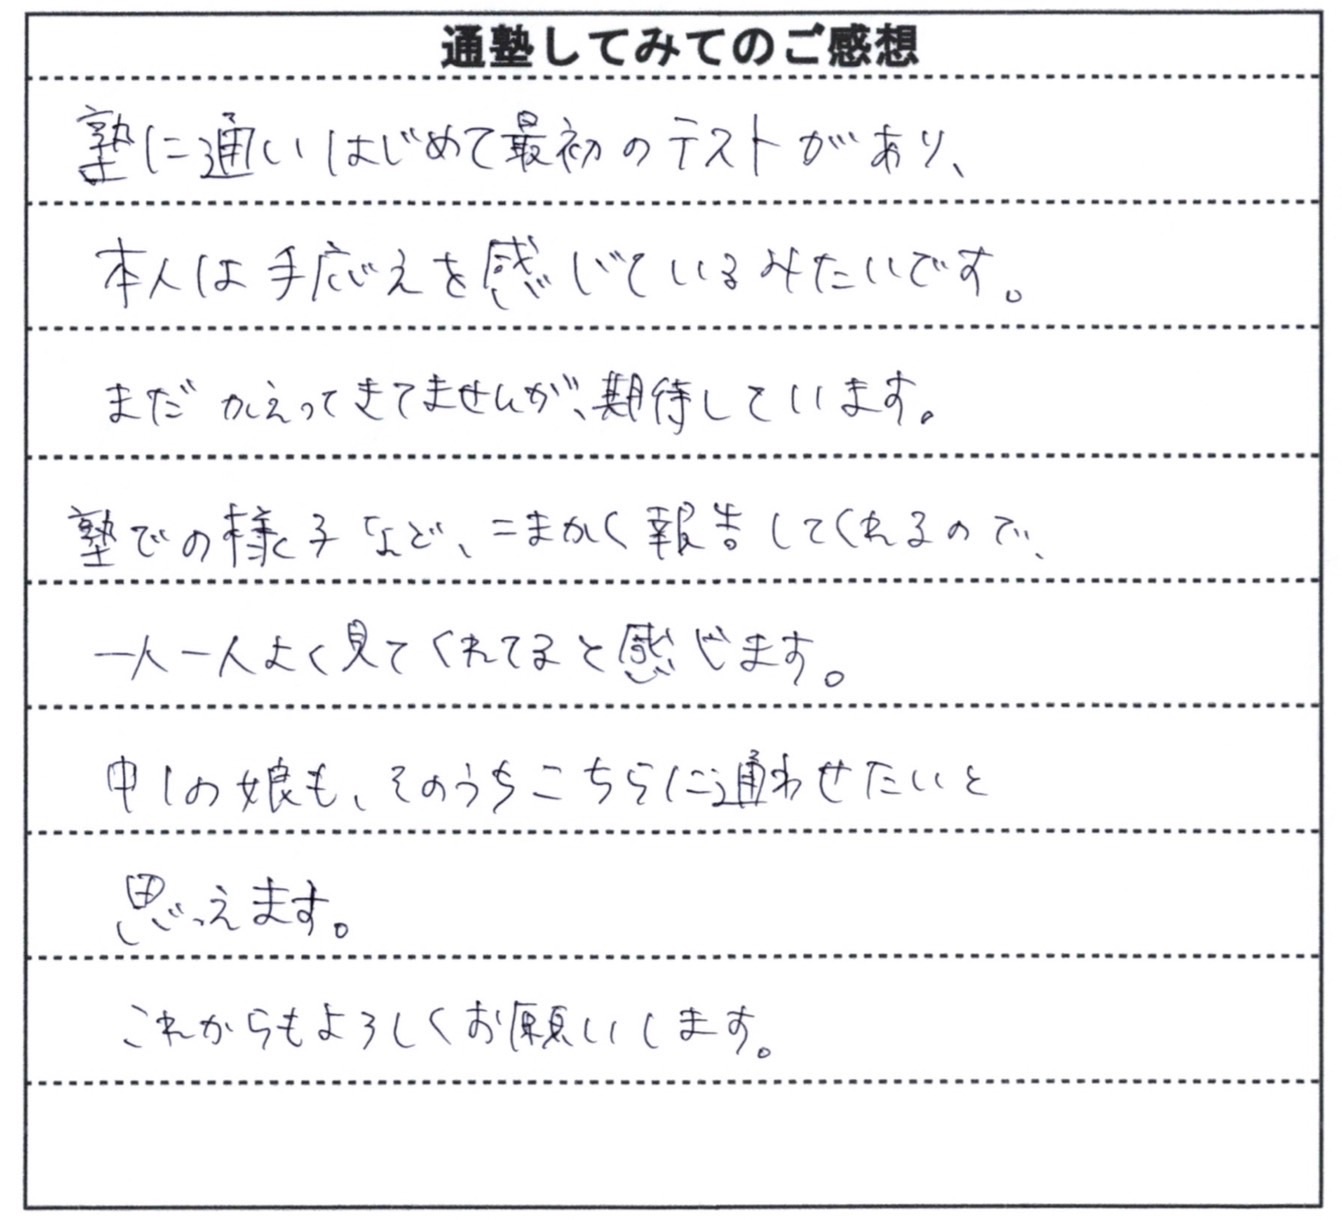 通塾してみてのご感想
塾に通いはじめて最初のテストがあり、
本人は手応えを感じているみたいです。
まだかえってきてませんが、期待しています。
塾での様子など、こまかく報告してくれるので、
一人一人よく見てくれてると感じます。
中1の娘も、そのうちこちらに通わせたいと
思っえます。
これからもよろしくお願いします。